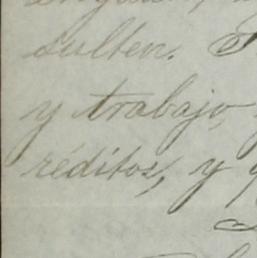 sulten.
y trabajo,
réditos, y